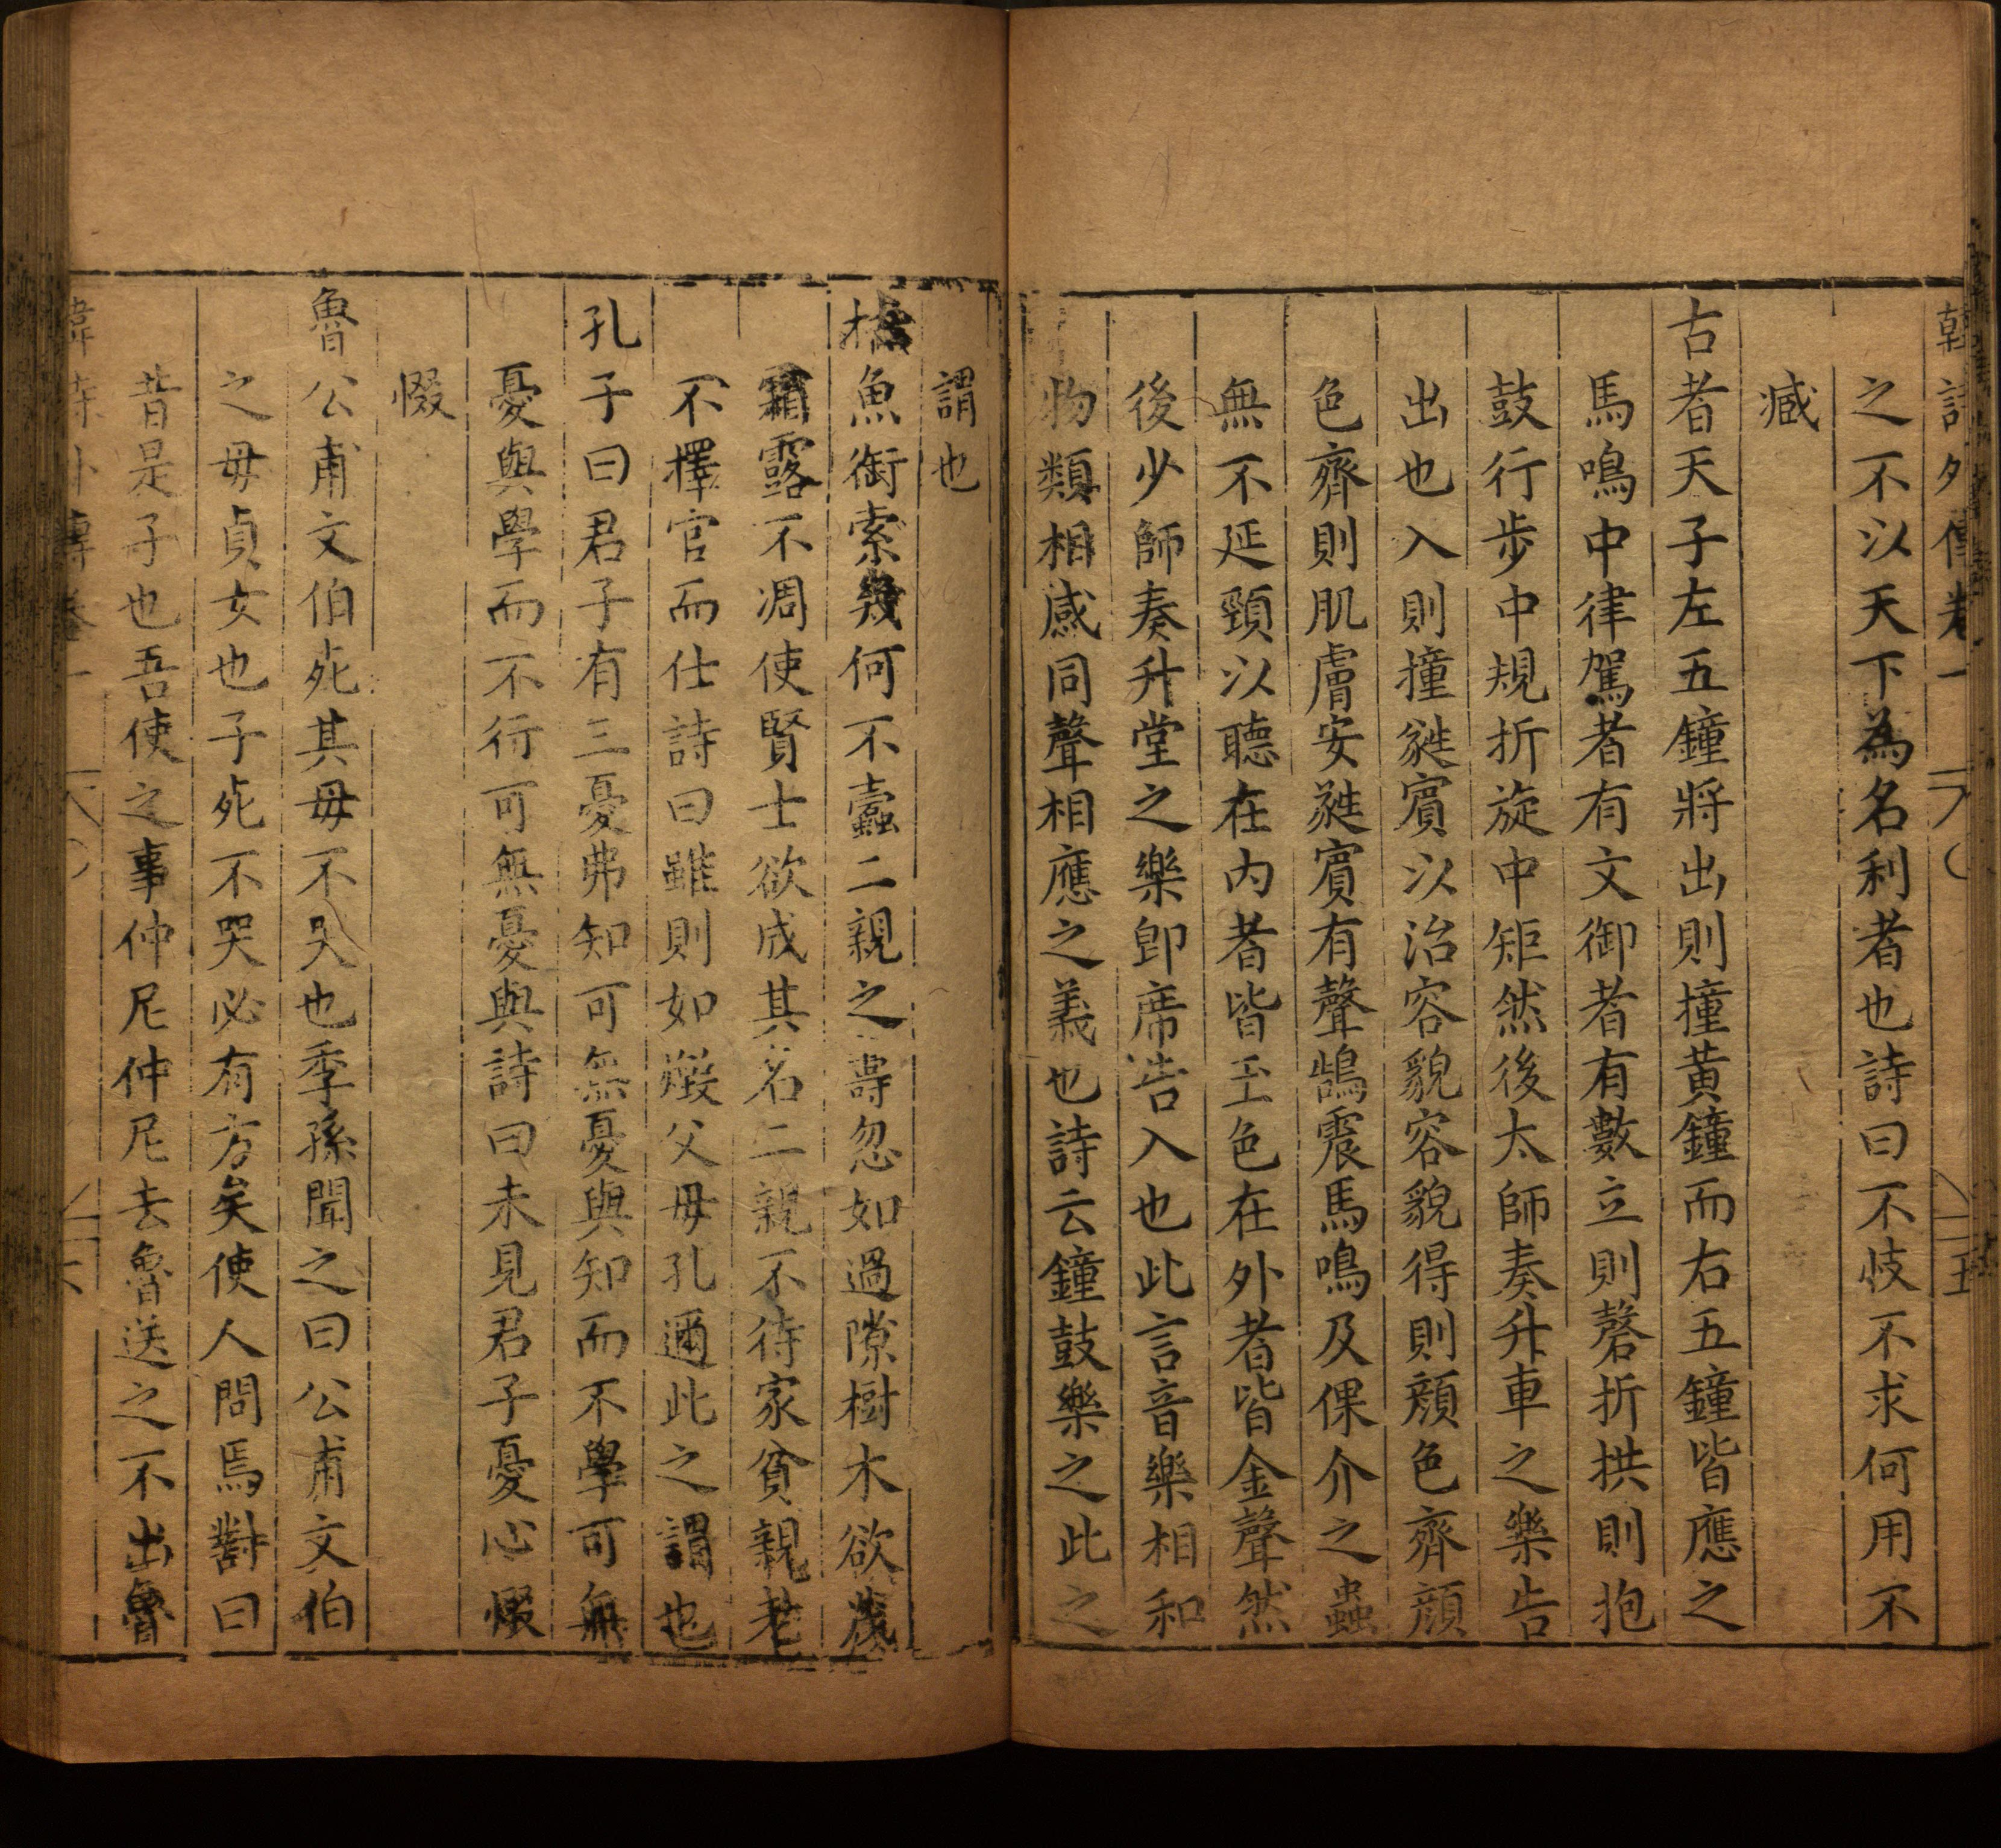 韓詩外傳卷一 五
之不以天下為名利者也詩曰不忮不求何用不
臧
古者天子左五鐘將出則撞黃鐘而右五鐘皆應之
馬鳴中律駕者有文御者有數立則磬折拱則抱
鼓行步中規折旋中矩然後太師奏升車之樂告
出也入則撞蕤賓以治容貌容貌得則顏色齊顏
色齊則肌膚安蕤賓有聲鵠震馬鳴及倮介之蟲
無不延頸以聽在內者皆玉色在外者皆金聲然
後少師奏升堂之樂卽席告入也此言音樂相和
物類相感同聲相應之義也詩云鐘鼓樂之此之
謂也
枯魚銜索幾何不蠹二親之壽忽如過隙樹木欲茂
霜露不凋使賢士欲成其名二親不待家貧親老
不擇官而仕詩曰雖則如燬父母孔邇此之謂也
孔子曰君子有三憂弗知可無憂與知而不學可無
憂與學而不行可無憂與詩曰未見君子憂心惙
惙
魯公甫文伯死其母不哭也季孫聞之曰公甫文伯
之母貞女也子死不哭必有方矣使人問焉對曰
昔是子也吾使之事仲尼仲尼去魯送之不出魯
韓詩外傳卷一 六